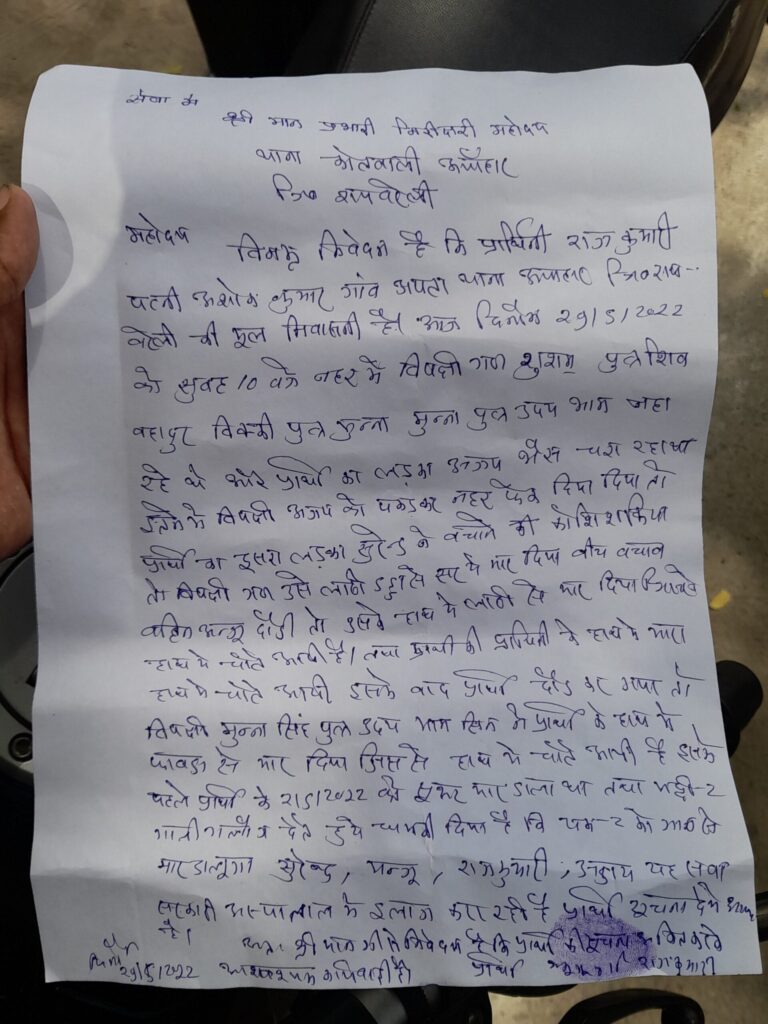 सेवा मे
श्री मान प्रभारी निरीक्षक महोदय
थाना कोतवाली ऊँचाहार
जि० रायबरेली
महोदय विनम्र निवेदन है कि प्रार्थिनी राज कुमारी
पत्नी अशोक कुमार गांव अपटा थाना ऊंचाहार जि० राय-
बरेली की मूल निवासनी है। आज दिनाँक 29/5/2022
को सुबह 10 बजे नहर में विपक्षी गण पुत्र शिव
बहादुर विक्की पुत्र मुन्ना मुन्ना पुत्र उदय भान नहा
रहे थे और प्रार्थी का लड़का अजय भैस चरा रहा था
इतने मे विपक्षी अजय को पकड़कर नहर फेक दिया दिया तो
प्रार्थी का दूसरा लड़का सुरेन्द्र ने बचाने की कोशिश किया
तो विपक्षी गण उसे लाठी डंडा से सर मे मार दिया बीच बचाव
बहिन दौड़ी तो उसके हाथ मे लाठी से मार दिया जिससे
हाथ मे चोटे आयी है। तथा प्रार्थी की प्रार्थिनी के हाथ मे मारा
हाथ मे चोटे आयी इसके बाद प्रार्थी दौड कर गया तो
विपक्षी मुन्ना सिंह पुत्र उदय भान सिंह ने प्रार्थी के हाथ मे
फावड़ा से मार दिया जिससे हाथ मे चोटे आयी है इसके
पहले प्रार्थी के 21/5/2022 को सुअर मार डाला था तथा भद्दी-2
गाली गलौज देते हुये धमकी दिया है कि एक-2 को जान से
मार डालूगा सुरेन्द्र, राजकुमारी, यह सब
सरकारी अस्पताल मे इलाज करा रही है प्रार्थी सूचना देने आया
है।
अतः श्री मान जी से निवेदन है कि प्रार्थी की सूचना अंकित करके
29/5/2022 आवश्यक कार्यवाही प्रार्थी राजकुमारी